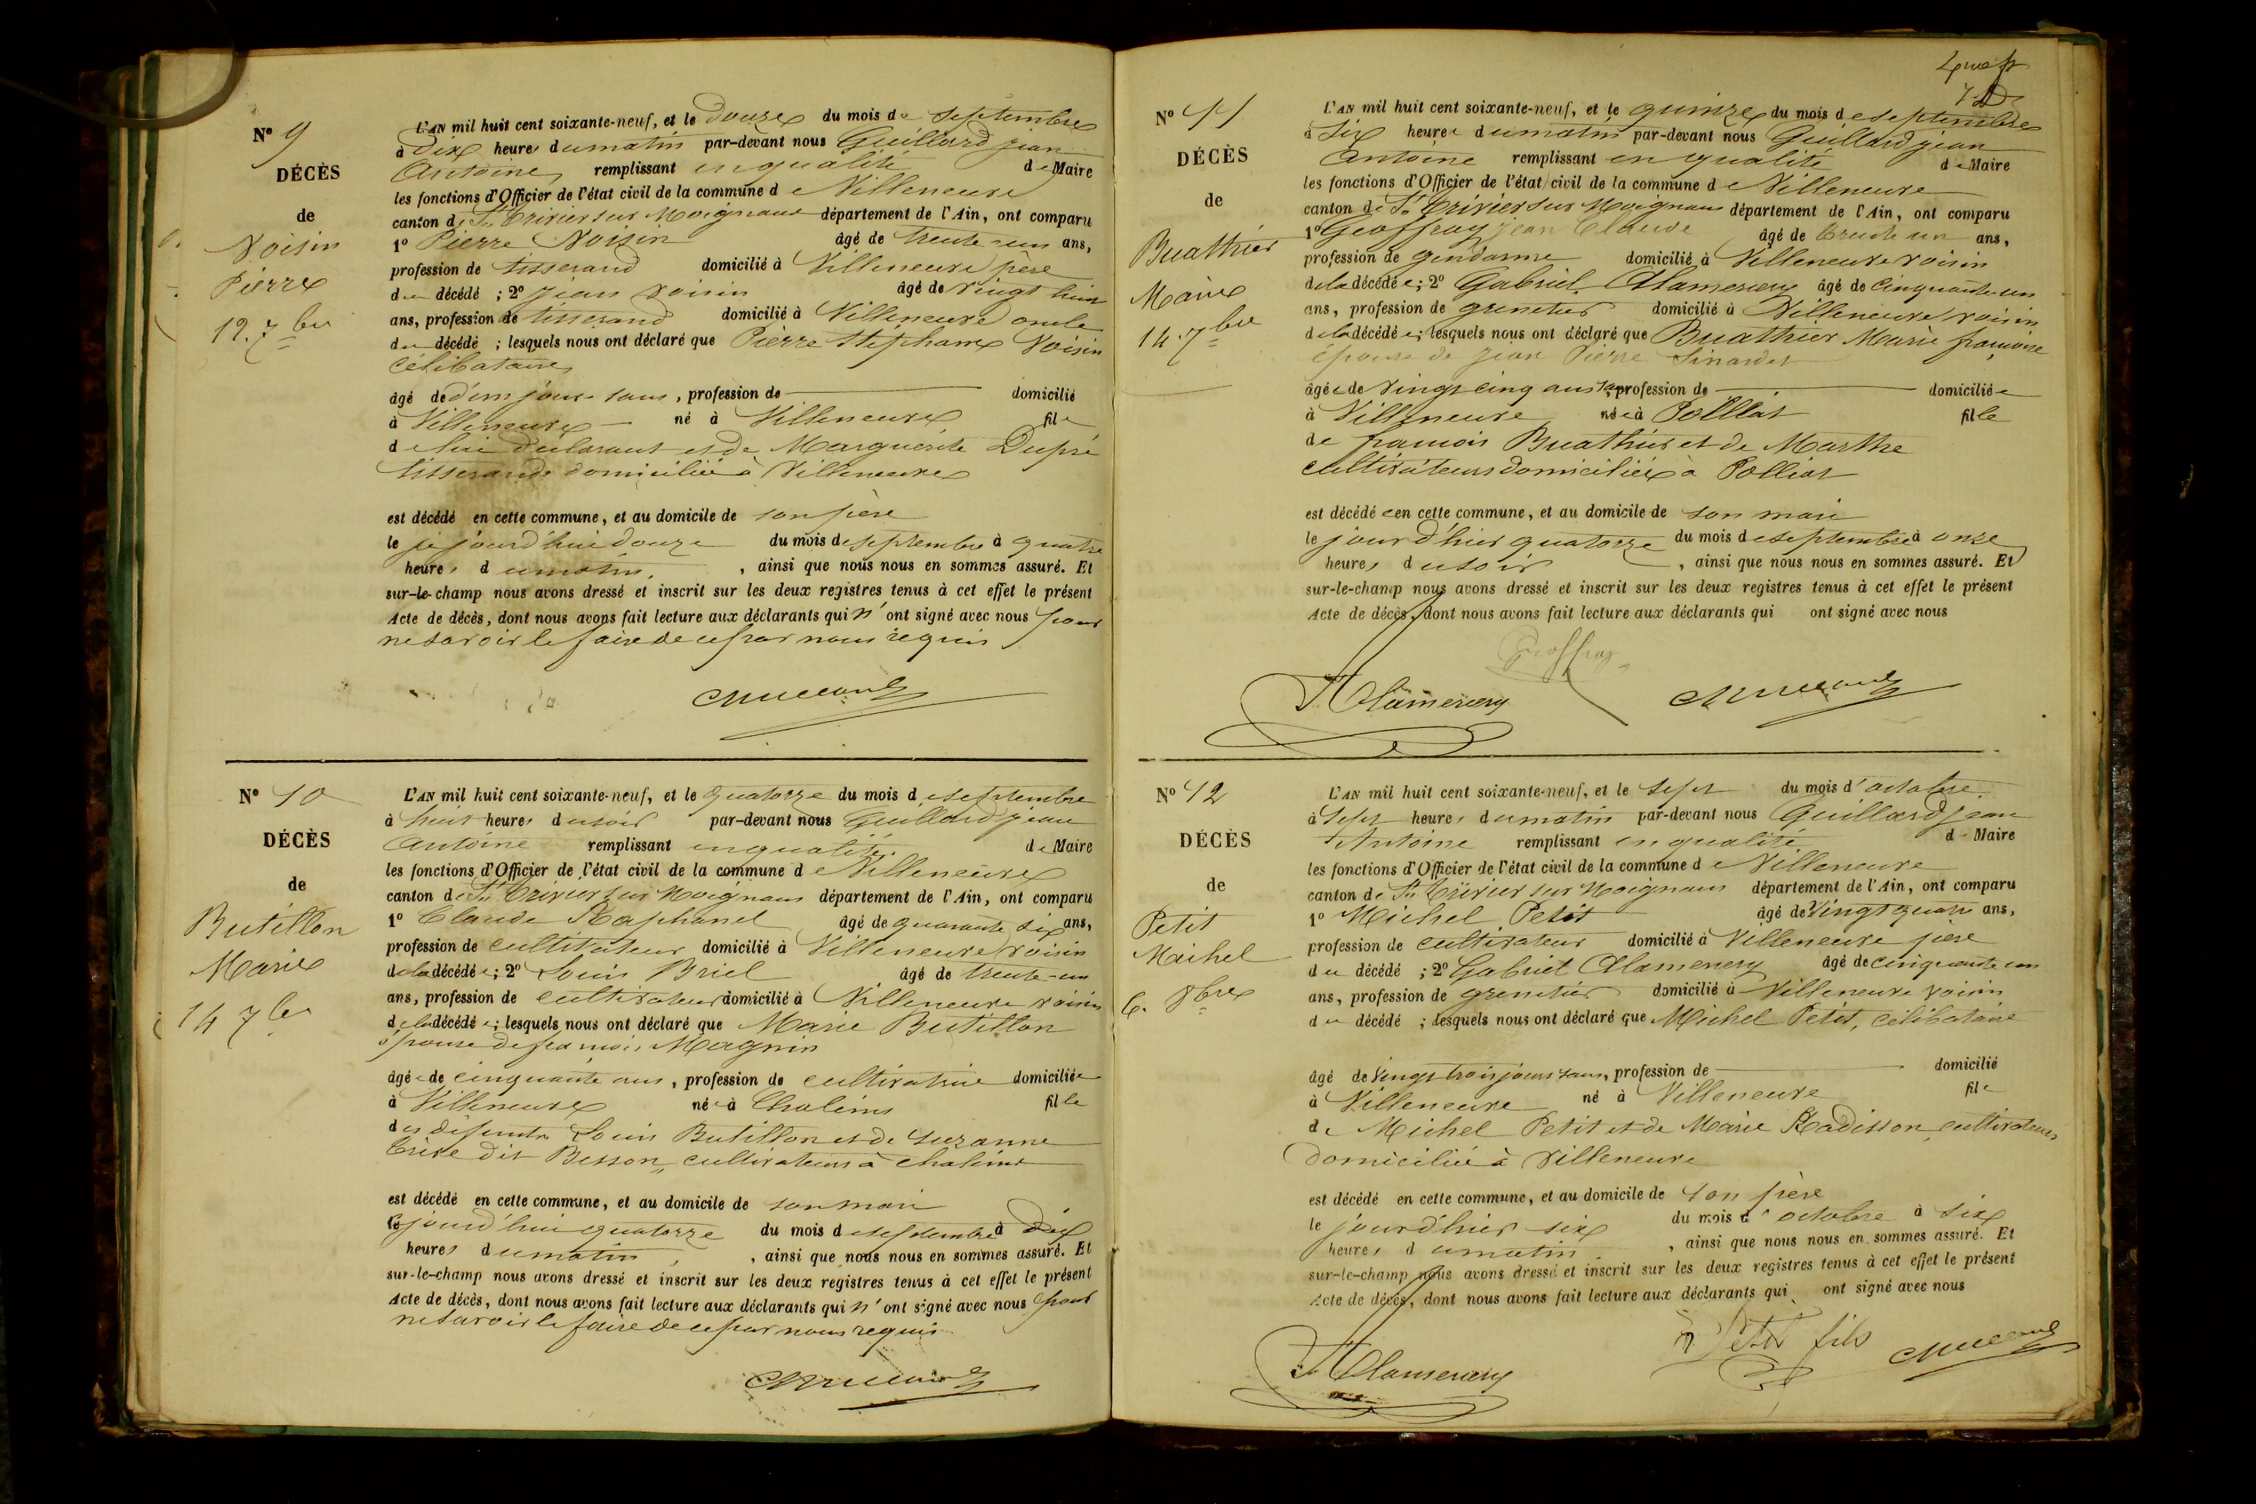 Nº 9
DÉCÈS
de
Voisin
Pierre
12. 7bre
L'AN mil huit cent soixante-neuf, et le douze du mois de septembre
à dix heures du matin par-devant nous Guillard jean
Antoine remplissant en qualité de Maire
les fonctions d'Officier de l'état civil de la commune de Villeneuve
canton de St Trivier sur Moignans département de l'Ain, ont comparu
1º Pierre Voisin âgé de trente-un ans,
profession de tisserand domicilié à Villeneuve père
du décédé ; 2º jean voisin âgé de vingt huit
ans, profession de tisserand domicilié à Villeneuve oncle
du décédé ; lesquels nous ont déclaré que Pièrre Stéphane Voisin
célibataire
âgé de dem jours sans, profession de domicilié
à Villeneuve né à Villeneuve fils
de lui déclarant et de Marguerite Dupré
tisserands domiciliée à Villeneuve
est décédé en cette commune, et au domicile de son père
le jourd'hui douze du mois de septembre à quatre
heures du matin, , ainsi que nous nous en sommes assuré. Et
sur-le-champ nous avons dressé et inscrit sur les deux registres tenus à cet effet le présent
Acte de décès, dont nous avons fait lecture aux déclarants qui n'ont signé avec nous pour
ne savoir le faire de ce par nous requis
Nº 10
DÉCÈS
de
Butillon
Marie
14 7bre
L'AN mil huit cent soixante-neuf, et le quatorze du mois de septembre
à huit heures du soir par-devant nous Guillard jean
Antoine remplissant en qualité de Maire
les fonctions d'Officier de l'état civil de la commune de Villeneuve
canton de St Trivier sur Moignans département de l'Ain, ont comparu
1º Claude Raphanel âgé de quarante six ans,
profession de cultivateur domicilié à Villeneuve voisin
de la décédée ; 2º Louis Briel âgé de trente-un
ans, profession de cultivateur domicilié à Villeneuve voisin
de la décédée ; lesquels nous ont déclaré que Marie Butillon
épouse de françois Magnin
âgée de cinquante ans, profession de cultivatrice domiciliée
à Villeneuve née à Chaleins fille
des défunts Louis Butillon et de Suzanne
Trève dit Besson, cultivateurs à chaleins
est décédé en cette commune, et au domicile de son mari
le jourd'hui quatorze du mois de septembre à dix
heures du matin, , ainsi que nous nous en sommes assuré. Et
sur-le-champ nous avons dressé et inscrit sur les deux registres tenus à cet effet le présent
Acte de décès, dont nous avons fait lecture aux déclarants qui n'ont signé avec nous pour
ne savoir le faire de ce par nous requis
Nº 11
DÉCÈS
de
Buathier
Marie
14 7bre
L'AN mil huit cent soixante-neuf, et le quinze du mois de septembre
à six heures du matin par-devant nous Guillard jean
Antoine remplissant en qualité de Maire
les fonctions d'Officier de l'état civil de la commune de Villeneuve
canton de St Trivier sur Moignans département de l'Ain, ont comparu
1º Geoffray jean Claude âgé de trente un ans,
profession de gendarme domicilié à Villeneuve voisin
de la décédée ; 2º Gabriel Alamercery âgé de cinquante-un
ans, profession de grenetier domicilié à Villeneuve voisin
de la décédée ; lesquels nous ont déclaré que Buathier Marie françoise
épouse de jean Pierre Sinardet
âgée de vingt cinq ans sans profession de domiciliée
à Villeneuve née à Polliat fille
de françois Buathier et de Marthe
cultivateurs domiciliés à Polliat
est décédée en cette commune, et au domicile de son mari
le jourd'hier quatorze du mois de septembre à onze
heures du soir , ainsi que nous nous en sommes assuré. Et
sur-le-champ nous avons dressé et inscrit sur les deux registres tenus à cet effet le présent
Acte de décès, dont nous avons fait lecture aux déclarants qui ont signé avec nous
Geoffray
Alamercery
Nº 12
DÉCÈS
de
Petit
Michel
6. 8bre
L'AN mil huit cent soixante-neuf, et le sept du mois d'octobre
à sept heures du matin par-devant nous Guillard jean
Antoine remplissant en qualité de Maire
les fonctions d'Officier de l'état civil de la commune de Villeneuve
canton de St Trivier sur Moignans département de l'Ain, ont comparu
1º Michel Petit âgé de vingt quatre ans,
profession de cultivateur domicilié à Villeneuve père
du décédé ; 2º Gabriel Alamercery âgé de cinquante un
ans, profession de grenetier domicilié à Villeneuve voisin
du décédé ; lesquels nous ont déclaré que Michel Petit, célibataire
âgé de vingt trois jours sans, profession de domicilié
à Villeneuve né à Villeneuve fils
de Michel Petit et de Marie Radisson, cultivateurs
domiciliée à Villeneuve
est décédé en cette commune, et au domicile de son père
le jourd'hier six du mois d'octobre à six
heures du matin , ainsi que nous nous en sommes assuré. Et
sur-le-champ nous avons dressé et inscrit sur les deux registres tenus à cet effet le présent
Acte de décès, dont nous avons fait lecture aux déclarants qui ont signé avec nous
Petit fils
Alamercery